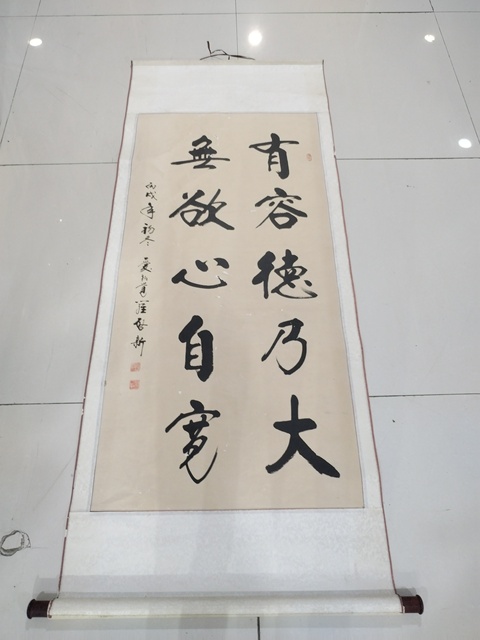 有容德乃大
無欲心自寬
丙戌年初冬